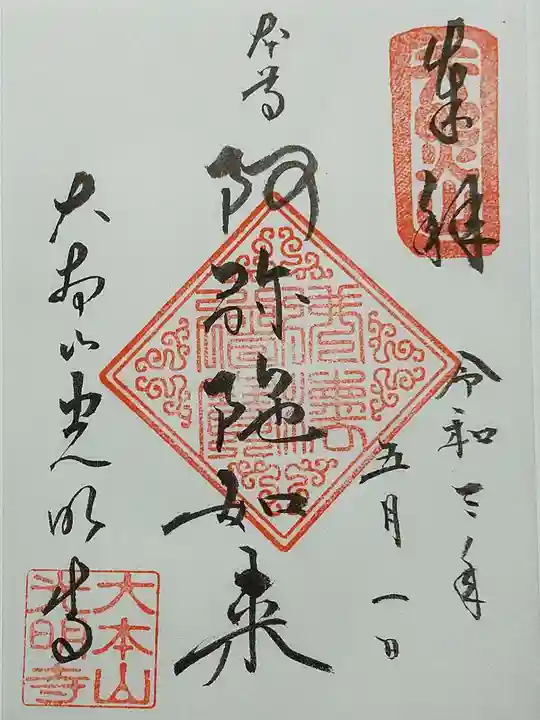 奉拝
令和三年
五月一日
本尊
阿弥陀如来
大本山光明寺
大本山
光明寺